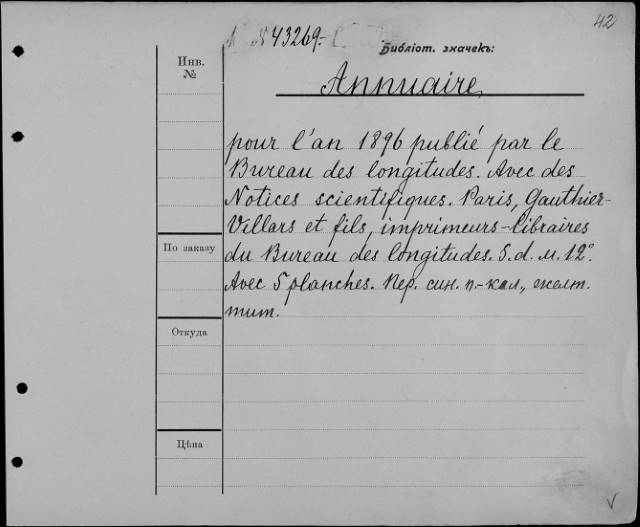 42
№ 43269.
Библіот. значекъ:
Инв.
№
Annuaire,
pour l'an 1896 publié par le
Bureau des longitudes. Avec des
Notices scientifiques. Paris, Gauthier-
Villars et fils, imprimeurs-libraires
du Bureau des longitudes. S. d. м. 12°.
Avec 5 planches. Пер. син. п.-кал., желт.
тит.
По заказу
Откуда
Цѣна